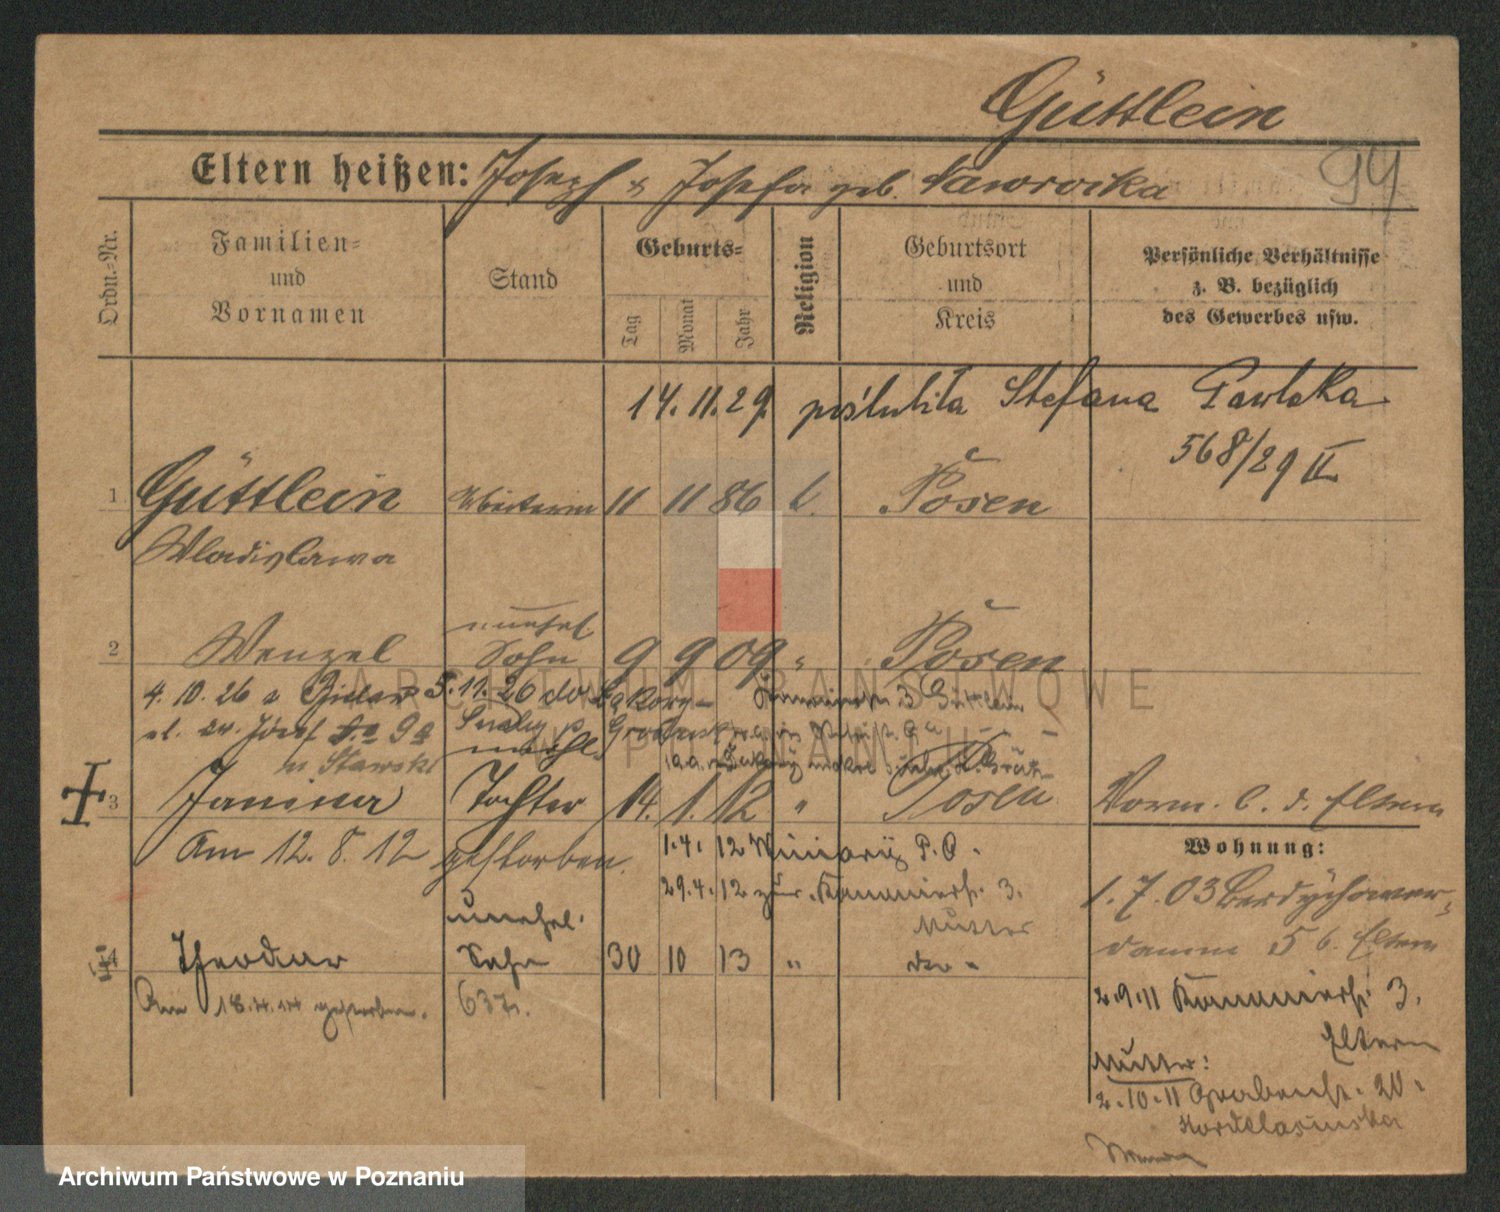 Güttlein
94
Eltern heißen: Joseph & Josefa geb. Sawrocka
Ordn.=Nr.
Familien=
und
Vornamen
Stand
Geburts=
Tag
Monat
Jahr
Religion
Geburtsort
und
Kreis
Persönliche Verhältnisse
z. B. bezüglich
des Gewerbes usw.
14.11.29. poślubiła Stefana Pawlaka
568/29 II
1 Güttlein Arbeiterin 11 11 86 k. Posen
Wladislawa
unehel.
2 Wenzel Sohn 9 9 09 " Posen
4.10.26 5.11.26
ul. Józef 9a
Stawski
3 Janina Tochter 14. 1. 12 " Posen Vorm. b. d. Eltern
Am 12.8.12 gestorben.
1.4. 12 Winiary P.O.
29.4.12 zur. Kommeniusstr. 3.
Mutter
Wohnung:
1.7.03 Berdychower-
damm 5 b. Eltern
unehel.
4 Theodor Sohn 30 10 13 "
Am 18. gestorben. 637.
2.9.11 3.
Eltern
Mutter:
2.10.11 Grabenstr. 20.
ARCHIWUM PAŃSTWOWE
W POZNANIU
Archiwum Państwowe w Poznaniu